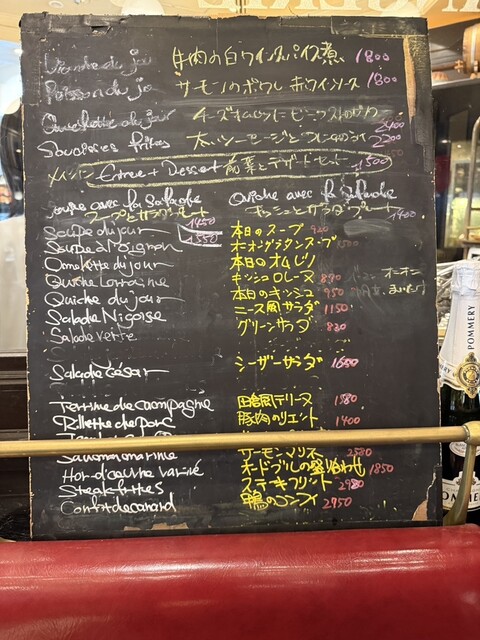 Viande du jour 牛肉の白ワインスパイス煮 1800
Poisson du jo サーモンのポワレ 赤ワインソース 1800
Omelette du jour チーズオムレツに 2400
Saucisses frites 太いソーセージと 2200
メインに Entrée + Dessert 前菜とデザートセット 1500
Soupe avec la Salade Quiche avec la Salade
スープとサラダプレート 1450 キッシュとサラダプレート 1400
Soupe du jour 1550 本日のスープ
Soupe à l'oignon オニオングラタンスープ
Omelette du jour 本日のオムレツ
Quiche Lorraine キッシュロレーヌ 890
Quiche du jour 本日のキッシュ 950
オニオン
Salade Niçoise ニース風サラダ 1150
Salade verte グリーンサラダ 820
Salade César シーザーサラダ 1650
Terrine de campagne 田舎風テリーヌ 1980
Rillette de porc 豚肉のリエット 1400
Saumon mariné サーモンマリネ 2580
Hor-d'œuvre varié オードブルの盛り合わせ 1850
Steak frites ステーキフリット 2980
Confit de canard 鴨のコンフィ 2950
POMMERY